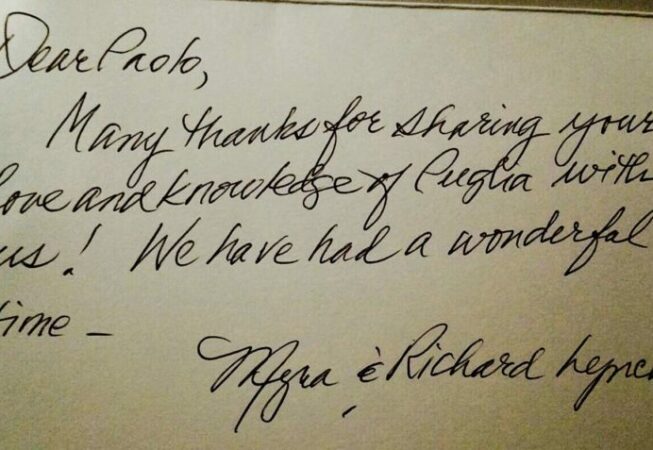 Dear Paolo,
Many thanks for sharing your
love and knowledge of Puglia with
us! We have had a wonderful
time -
Myra & Richard Lynch